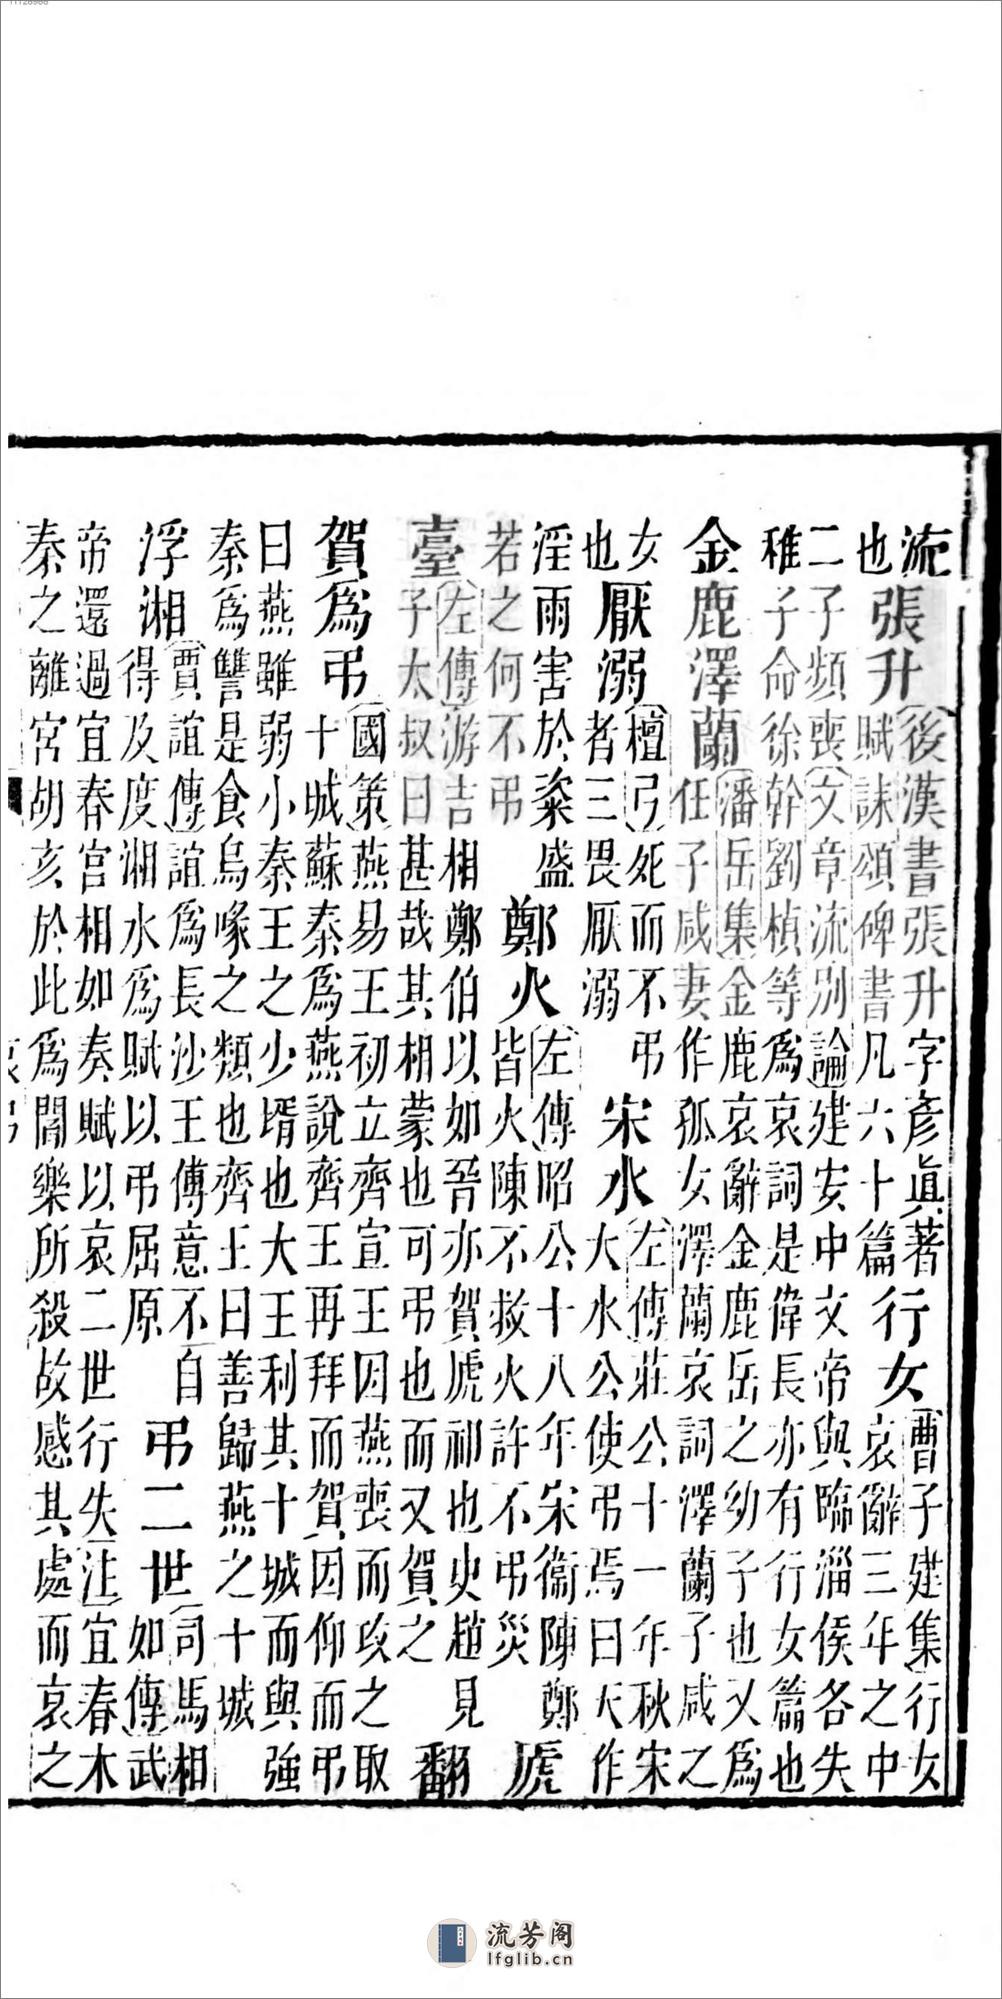 流
也
張升
後漢書張升字彥眞著
賦誄頌碑書凡六十篇
行女
曹子建集行女
哀辭三年之中
二子頻喪文章流別論建安中文帝與臨淄侯各失
稚子命徐幹劉楨等爲哀詞是偉長亦有行女篇也
金鹿澤蘭
潘岳集金鹿哀辭金鹿岳之幼子也又爲
任子咸妻作孤女澤蘭哀詞澤蘭子咸之
女
也
厭溺
檀弓死而不弔
者三畏厭溺
宋水
左傳莊公十一年秋宋
大水公使弔焉曰天作
淫雨害於粢盛
若之何不弔
鄭火
左傳昭公十八年宋衞陳鄭
皆火陳不救火許不弔災
虒
臺
左傳游吉相鄭伯以如晉亦賀虒祁也史趙見
子太叔曰甚哉其相蒙也可弔也而又賀之
翻
賀爲弔
國策燕易王初立齊宣王因燕喪而攻之取
十城蘇秦爲燕說齊王再拜而賀因仰而弔
曰燕雖弱小秦王之少壻也大王利其十城而與強
秦爲讐是食烏喙之類也齊王曰善歸燕之十城
浮湘
賈誼傳誼爲長沙王傅意不自
得及度湘水爲賦以弔屈原
弔二世
司馬相
如傳武
帝還過宜春宮相如奏賦以哀二世行失注宜春木
秦之離宮胡亥於此爲閻樂所殺故感其處而哀之
流芳阁
lfglib.cn